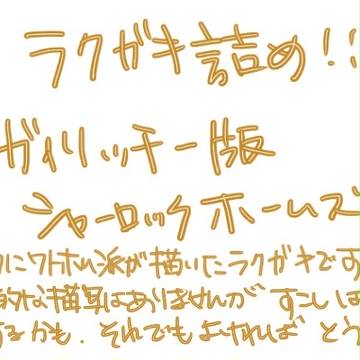 ラクガキ詰め!!
ガイリッチー版
シャーロックホームズ
にワトホム派が描いたラクガキです
的な描写はありませんが すこしは
るかも. それでもよければ どう